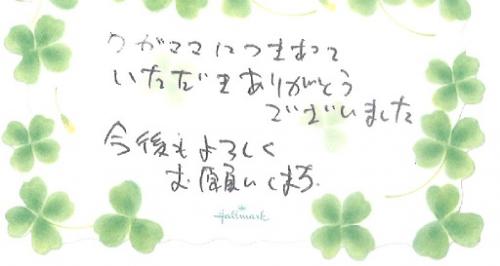 ワガママにつきあって
いただきありがとう
ございました
今後もよろしく
お願いします。
Hallmark